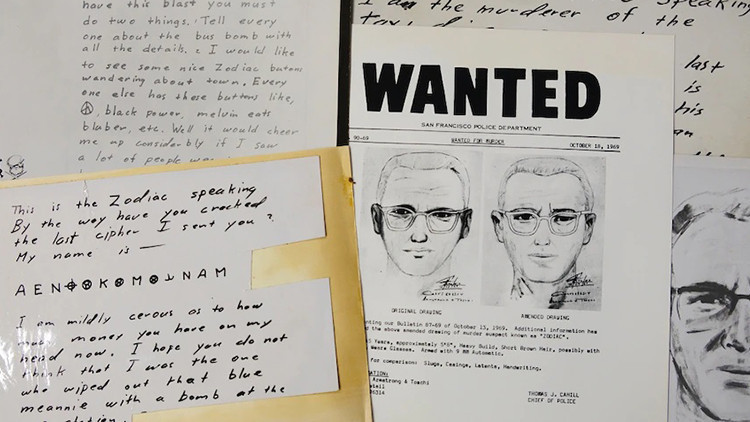 have this blast you must
do two things. Tell every
one about the bus bomb with
all the details. 2 I would like
to see some nice Zodiac butons
wandering about town. Every
one else has these buttons like,
black power, melvin eats
bluber, etc. Well it would cheer
me up considerbly if I saw
a lot of people
This is the Zodiac speaking
By the way have you cracked
the last cipher I sent you?
My name is —
A E N ⊕ ⊗ K ⊗ M ⊗ ⅃ N A M
I am mildly cerous as to how
much money you have on my
head now. I hope you do not
think that I was the one
who wiped out that blue
meannie with a bomb at the
speaking
I am the murderer of the
last
is
his
WANTED
SAN FRANCISCO POLICE DEPARTMENT
90-69 WANTED FOR MURDER OCTOBER 18, 1969
ORIGINAL DRAWING AMENDED DRAWING
our Bulletin 87-69 of October 13, 1969. Additional information has
the above amended drawing of murder suspect known as "ZODIAC".
Years, approximately 5'8", Heavy Build, Short Brown Hair, possibly with
Wears Glasses. Armed with 9 MM Automatic.
for comparison: Slugs, Casings, Latents, Handwriting.
Armstrong & Toschi
THOMAS J. CAHILL
CHIEF OF POLICE